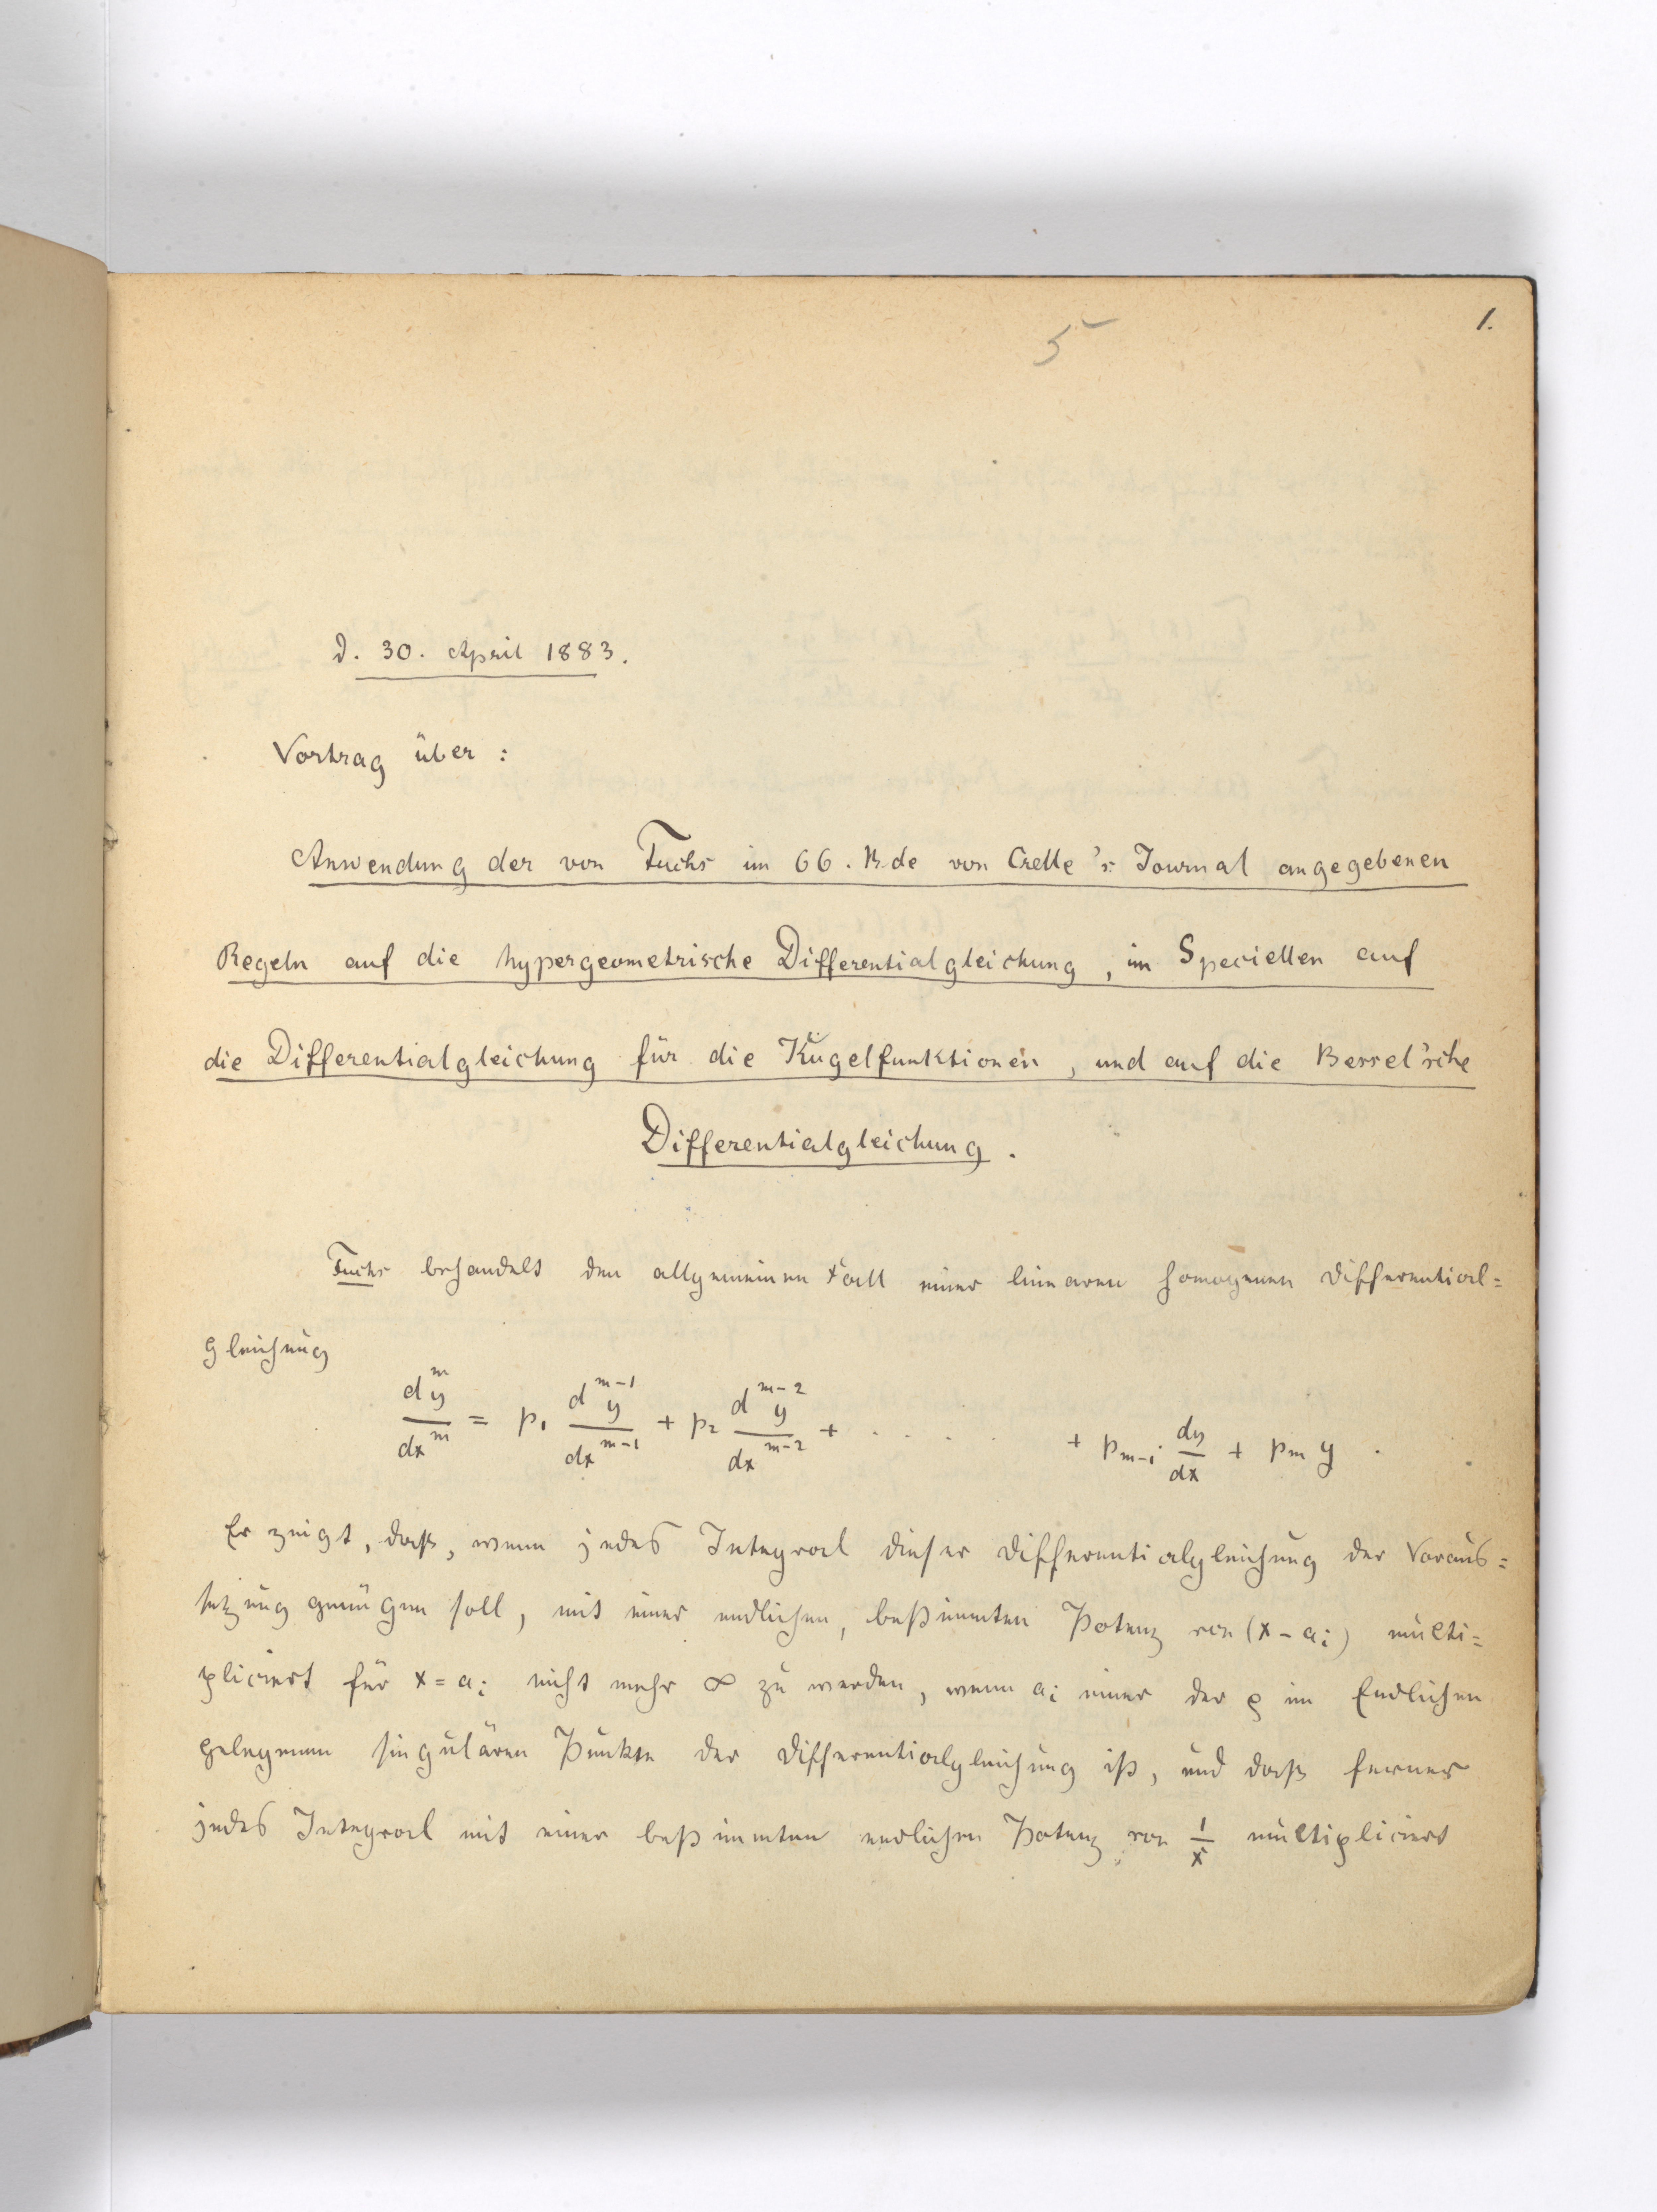 5
1.
d. 30. April 1883.
Vortrag über :
Anwendung der von Fuchs im 66. Bde von Crelle's Journal angegebenen
Regeln auf die hypergeometrische Differentialgleichung, im Speciellen auf
die Differentialgleichung für die Kugelfunktionen, und auf die Bessel'sche
Differentialgleichung.
Fuchs behandelt den allgemeinen Fall einer linearen homogenen Differential=
gleichung
d^m y / dx^m = p₁ d^{m-1} y / dx^{m-1} + p₂ d^{m-2} y / dx^{m-2} + . . . . . + p_{m-1} dy/dx + p_m y .
Er zeigt, daß, wenn jedes Integral dieser Differentialgleichung der Voraus=
setzung genügen soll, mit einer endlichen, bestimmten Potenz von (x - a_i) multi=
pliciert für x = a_i nicht mehr ∞ zu werden, wenn a_i einer der ρ im Endlichen
gelegenen singulären Punkte der Differentialgleichung ist, und daß ferner
jedes Integral mit einer bestimmten endlichen Potenz von 1/x multipliciert